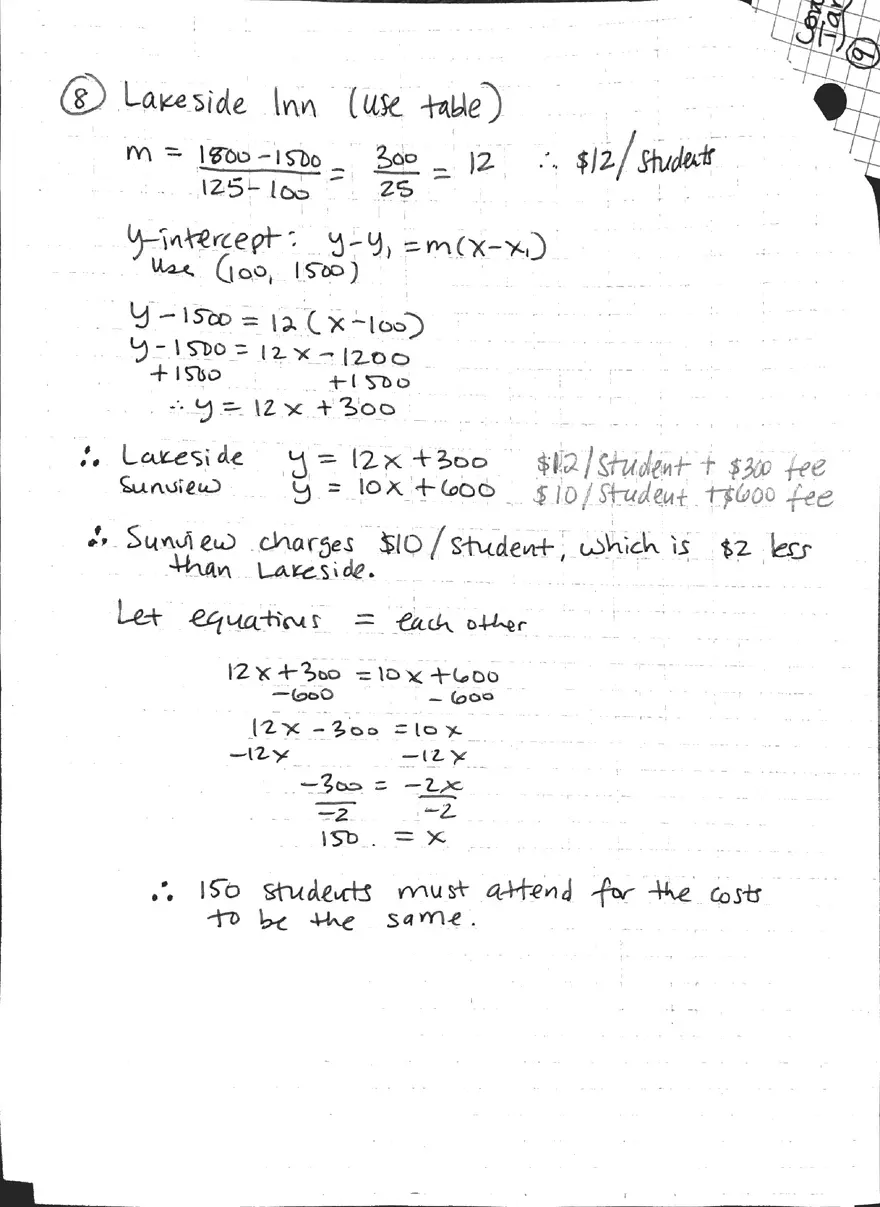 ⑧ Lakeside Inn (use table)
m = 1800-1500 / 125-100 = 300 / 25 = 12 ∴ $12/students
y-intercept: y-y₁ = m(x-x₁)
use (100, 1500)
y-1500 = 12(x-100)
y-1500 = 12x-1200
+1500 +1500
∴ y = 12x+300
∴ Lakeside y = 12x+300 $12/student + $300 fee
Sunview y = 10x+600 $10/student + $600 fee
∴ Sunview charges $10/student, which is $2 less
than Lakeside.
Let equations = each other
12x+300 = 10x+600
-600 -600
12x-300 = 10x
-12x -12x
-300 = -2x
-2 -2
150 = x
∴ 150 students must attend for the costs
to be the same.
⑨